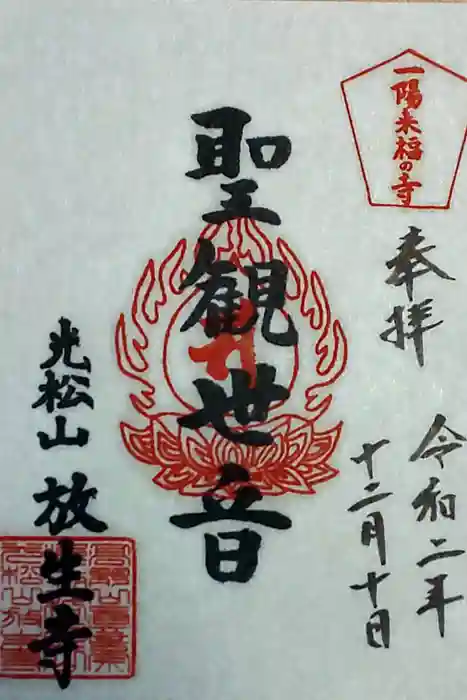 一陽来福の寺
奉拝
令和二年
十二月十日
聖観世音
光松山 放生寺